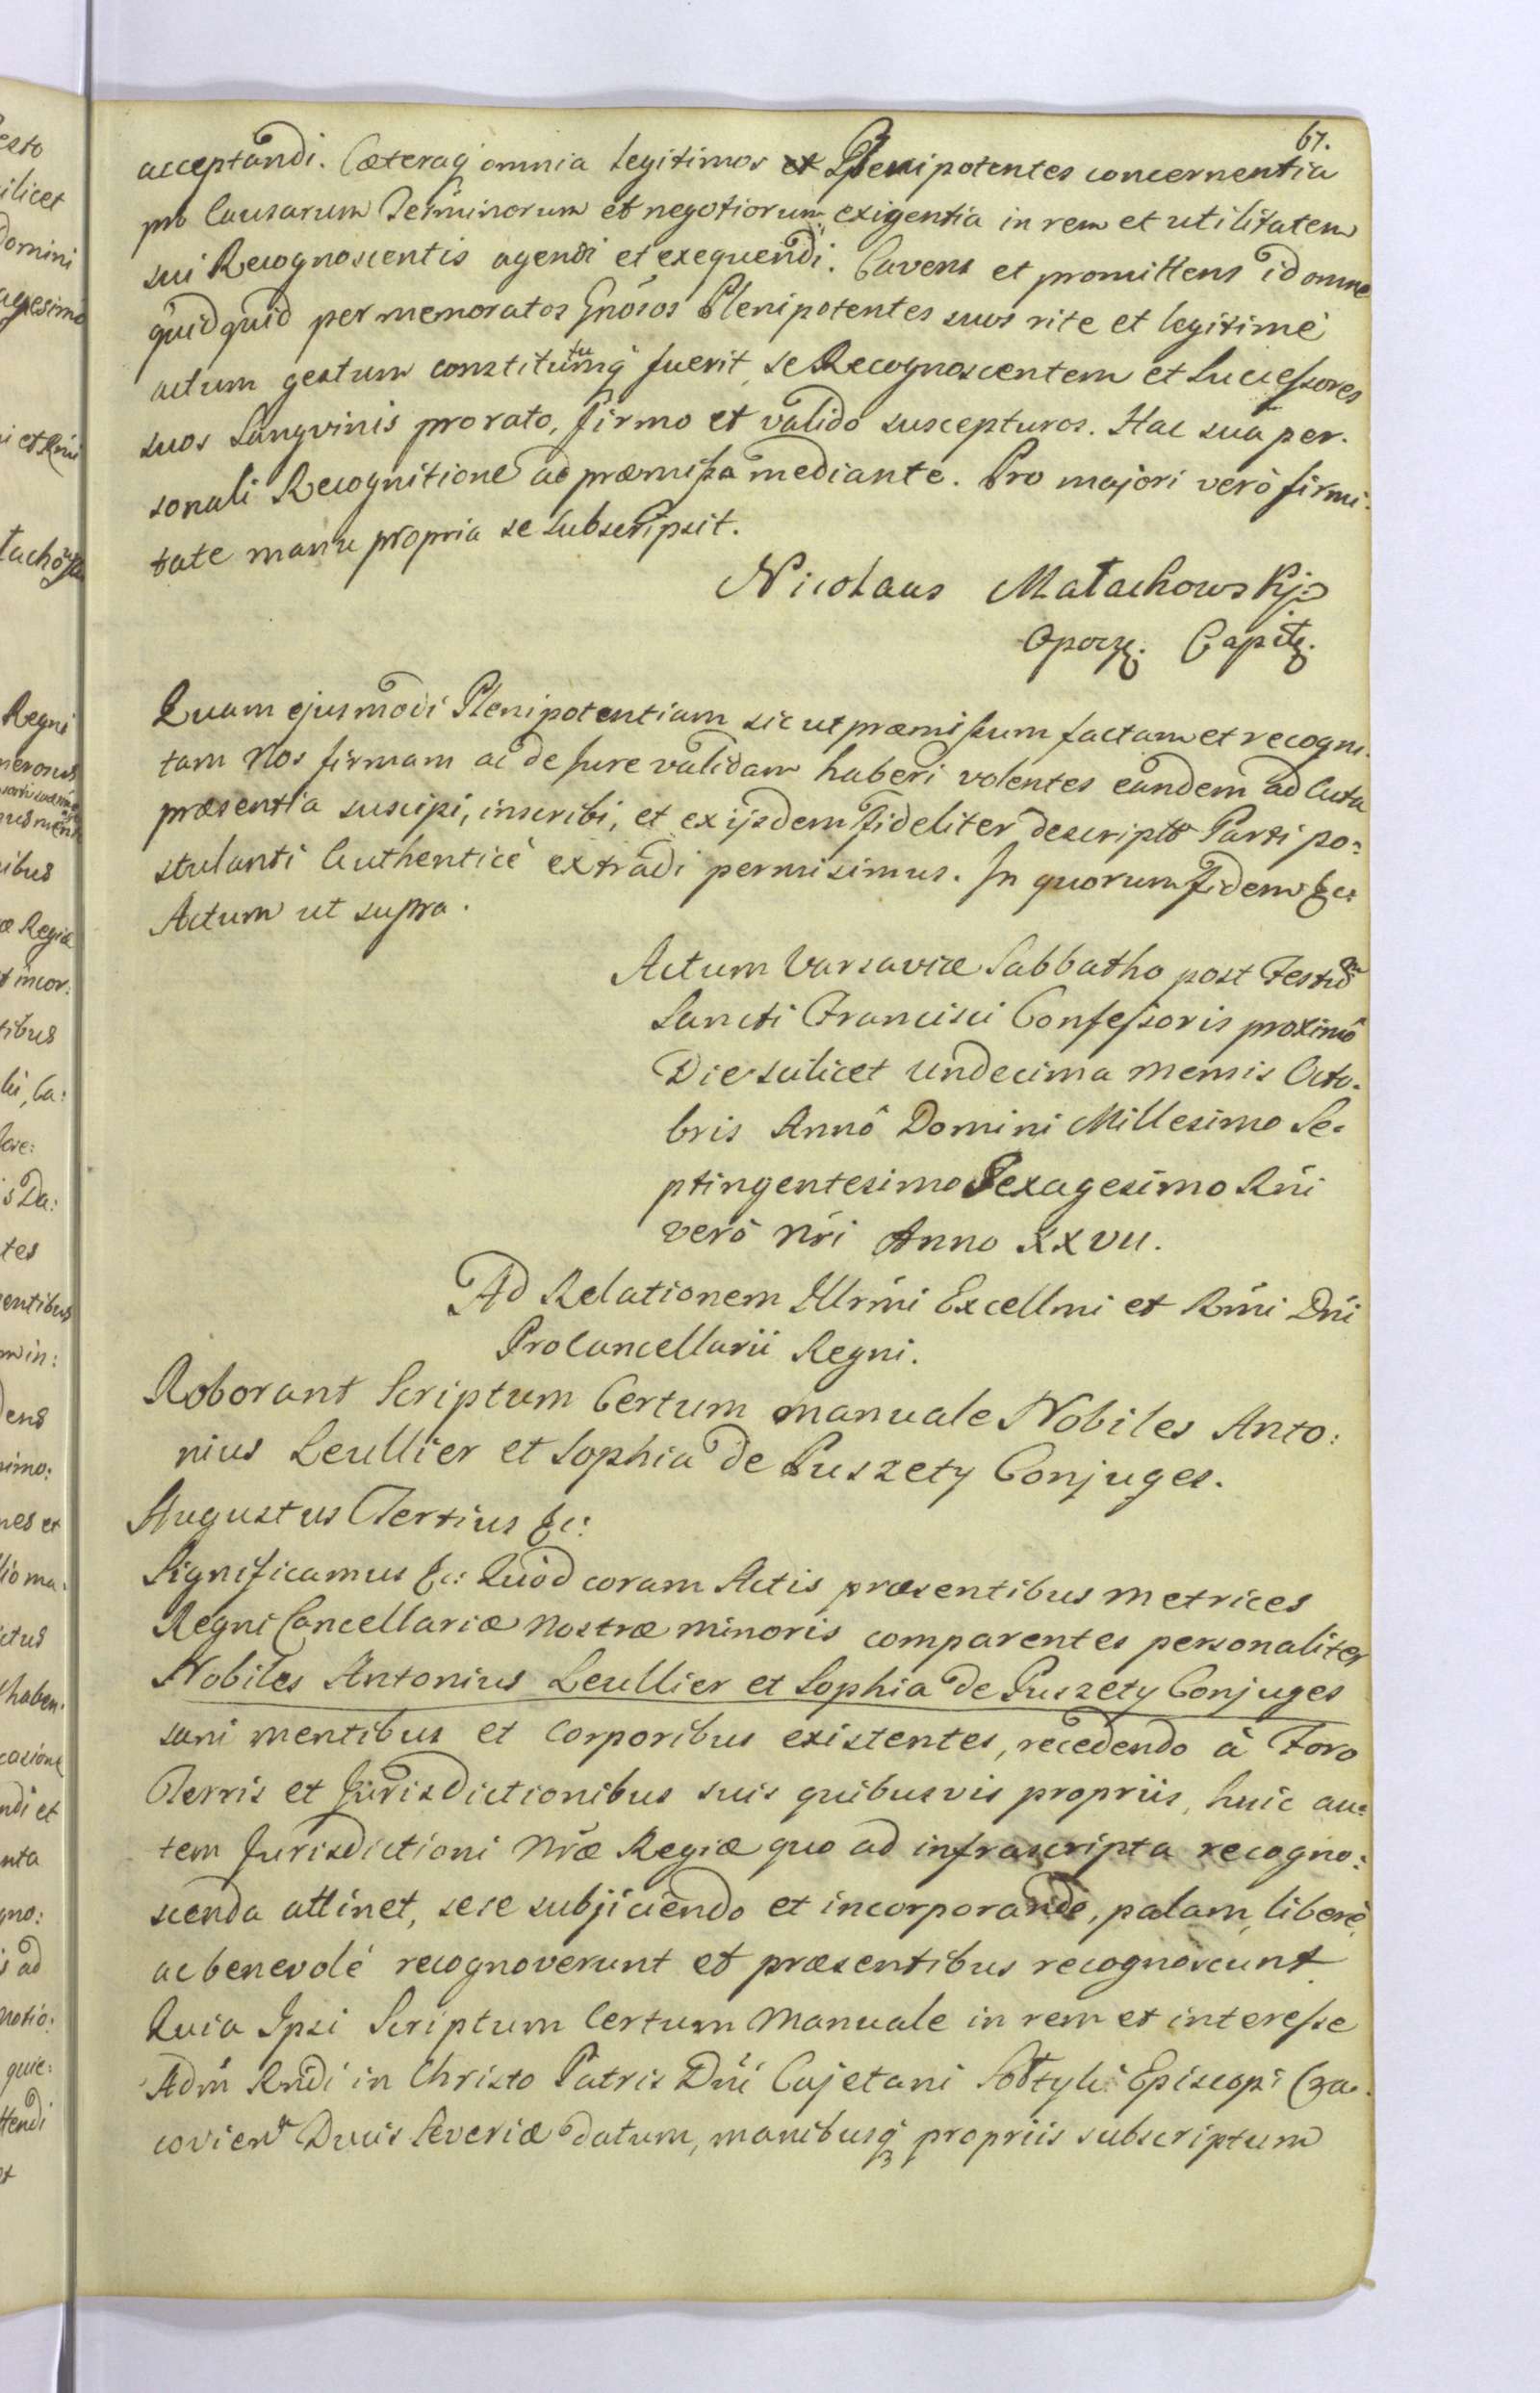 67.
acceptandi. Cæteraq; omnia legitimos et Plenipotentes concernentia
pro Causarum Terminorum et negotiorum exigentia in rem et utilitatem
sui Recognoscentis agendi et exequendi. Cavens et promittens id omne
quidquid per memoratos Gnôsos Plenipotentes suos rite et legitimè
actum gestum constitutumq; fuerit, se Recognoscentem et Successores
suos Sangvinis pro rato, firmo et valido suscepturos. Hac sua per-
sonali Recognitione ad præmissa mediante. Pro majori verò firmi-
tate manu propria se subscripsit.
Nicolaus Małachowskj
Opocz. Capit.
Quam ejusmodi Plenipotentiam sic ut præmissum factam et recogni-
tam Nos firmam ac de Jure validam haberi volentes eandem ad Acta
præsentia suscipi, inscribi, et ex ijsdem fideliter descripto Parti po:
stulanti Authenticè extradi permisimus. In quorum fidem &c:
Actum ut supra.
Actum Varsaviæ Sabbatho post Festum
Sancti Francisci Confessoris proximô
Die scilicet undecima mensis Octo-
bris Annô Domini Millesimo Se-
ptingentesimo Sexagesimo Rńi
verò Nri Anno XXVII.
Ad Relationem Illrmi Excellmi et Rmi Dni
ProCancellarii Regni.
Roborant Scriptum Certum manuale Nobiles Anto:
nius Leullier et Sophia de Puszety Conjuges.
Augustus Tertius &c:
Significamus &c: Quòd coram Actis præsentibus Metrices
Regni Cancellariæ Nostræ Minoris comparentes personaliter
Nobiles Antonius Leullier et Sophia de Puszety Conjuges
sani mentibus et Corporibus existentes, recedendo à Foro
Terris et Jurisdictionibus suis quibusvis propriis, huic au:
tem Jurisdictioni Nræ Regiæ quo ad infrascripta recogno:
scenda attinet, sese subjiciendo et incorporando, palam, liberè,
ac benevolè recognoverunt et præsentibus recognoscunt.
Quia Ipsi Scriptum Certum Manuale in rem et interesse
Adm Rndi in Christo Patris Dni Cajetani Sołtyk Episcopi Cra-
covien Ducis Severiæ datum, manibusq; propriis subscriptum